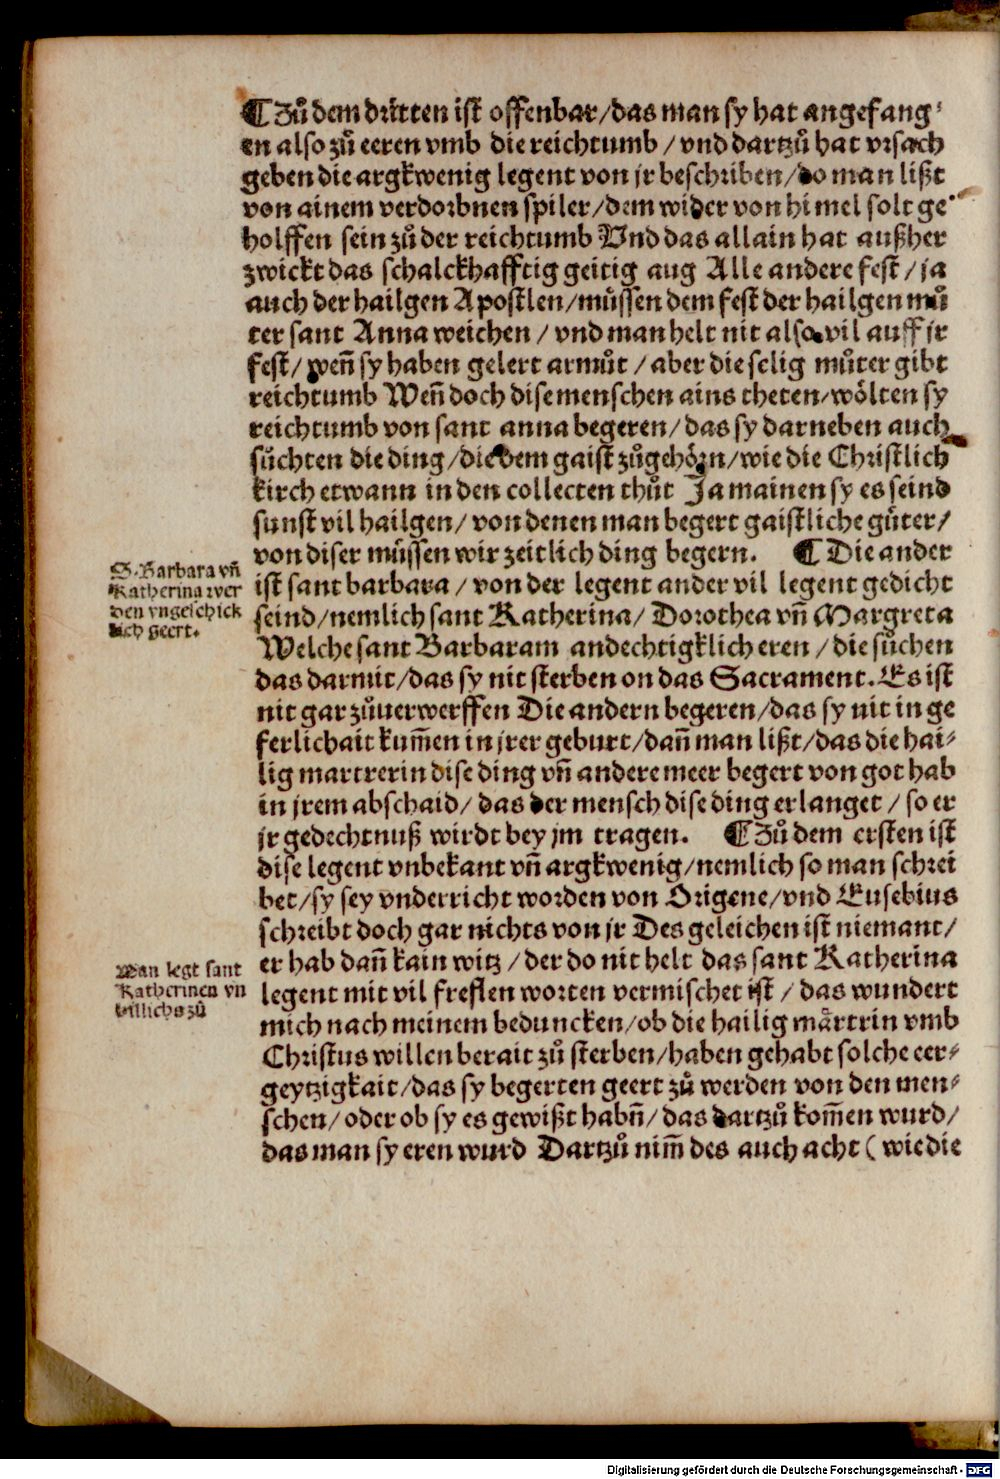 ¶ Zů dem dritten ist offenbar/das man sy hat angefang⸗
en also zů eeren vmb die reichtumb / vnd dartzů hat vrsach
geben die argkwenig legent von jr beschriben/do man lißt
von ainem verdorbnen spiler/dem wider von himel solt ge
holffen sein zů der reichtumb Vnd das allain hat außher
zwickt das schalckhafftig geitig aug Alle andere fest / ja
auch der hailgen Apostlen/můssen dem fest der hailgen mů
ter sant Anna weichen / vnd man helt nit also vil auff jr
fest/ weñ sy haben gelert armůt / aber die selig můter gibt
reichtumb Weñ doch dise menschen ains theten/wölten sy
reichtumb von sant anna begeren/das sy darneben auch
sůchten die ding/die dem gaist zůgehörn/wie die Christlich
kirch etwann in den collecten thůt Ja mainen sy es seind
sunst vil hailgen/ von denen man begert gaistliche gůter/
von diser můssen wir zeitlich ding begern. ¶ Die ander
S. Barbara vñ
Katherina wer
den vngeschick
lich geert.
ist sant barbara / von der legent ander vil legent gedicht
seind/nemlich sant Katherina/ Dorothea vñ Margreta
Welche sant Barbaram andechtigklich eren / die sůchen
das darmit/das sy nit sterben on das Sacrament. Es ist
nit gar zůuerwerffen Die andern begeren/das sy nit in ge
ferlichait kum̃en in jrer geburt/dañ man lißt/das die hai⸗
lig martrerin dise ding vñ andere meer begert von got hab
in jrem abschaid/ das der mensch dise ding erlanget / so er
jr gedechtnuß wirdt bey jm tragen. ¶ Zů dem ersten ist
dise legent vnbekant vñ argkwenig/nemlich so man schrei
bet/sy sey vnderricht worden von Origene/vnd Eusebius
schreibt doch gar nichts von jr Des geleichen ist niemant/
er hab dañ kain witz / der do nit helt das sant Katherina
Man legt sant
Katherinen vn
billichs zů
legent mit vil freflen worten vermischet ist / das wundert
mich nach meinem beduncken/ob die hailig märtrin vmb
Christus willen berait zů sterben/haben gehabt solche eer⸗
geytzigkait/das sy begerten geert zů werden von den men⸗
schen/oder ob sy es gewißt habñ/das dartzů kom̃en wurd/
das man sy eren wurd Dartzů nim̃ des auch acht ( wie die
Digitalisierung gefördert durch die Deutsche Forschungsgemeinschaft - DFG